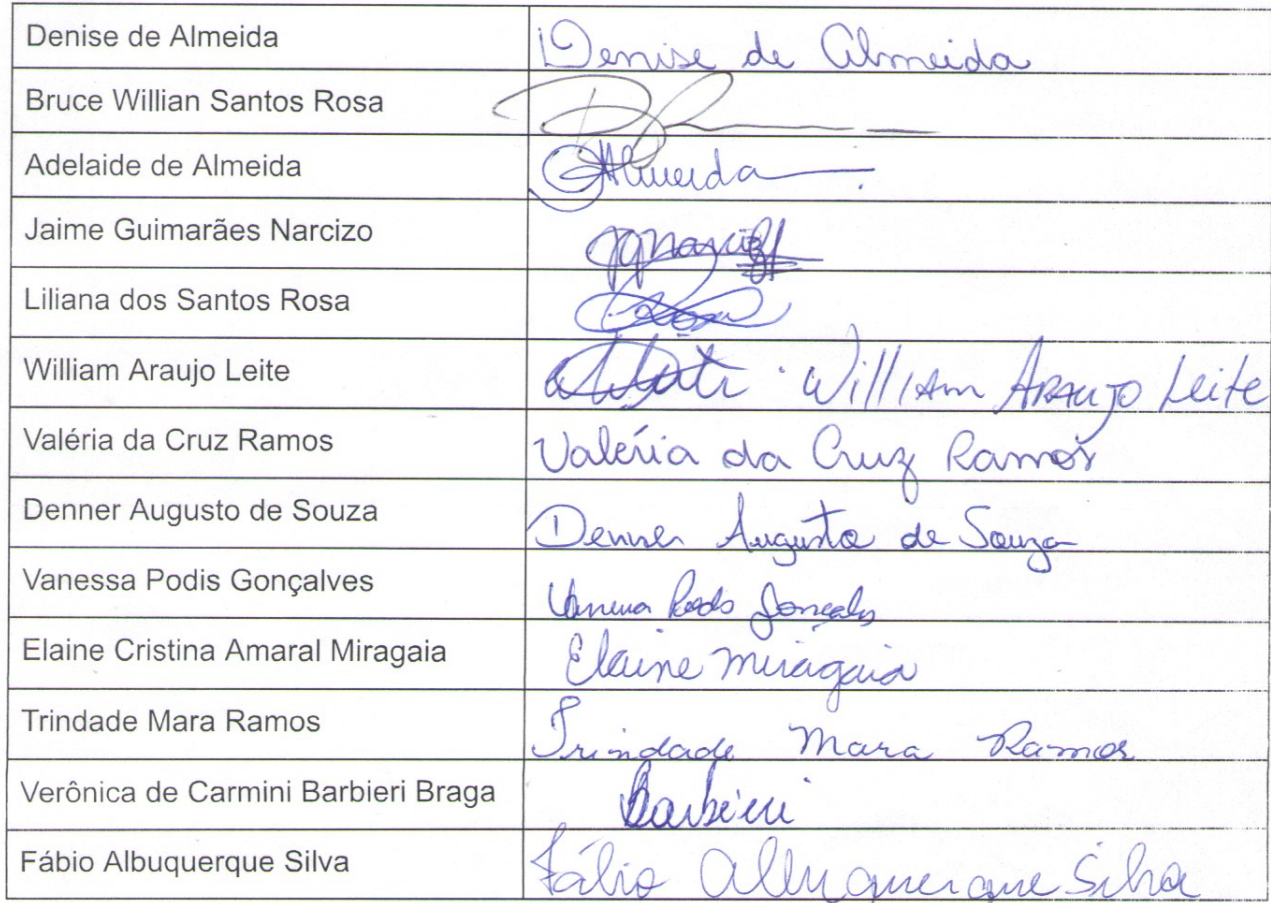 Denise de Almeida Denise de Almeida
Bruce Willian Santos Rosa
Adelaide de Almeida Almeida
Jaime Guimarães Narcizo
Liliana dos Santos Rosa
William Araujo Leite William Araujo Leite
Valéria da Cruz Ramos Valéria da Cruz Ramos
Denner Augusto de Souza Denner Augusto de Souza
Vanessa Podis Gonçalves
Elaine Cristina Amaral Miragaia Elaine Miragaia
Trindade Mara Ramos Trindade Mara Ramos
Verônica de Carmini Barbieri Braga Barbieri
Fábio Albuquerque Silva Fábio Albuquerque Silva